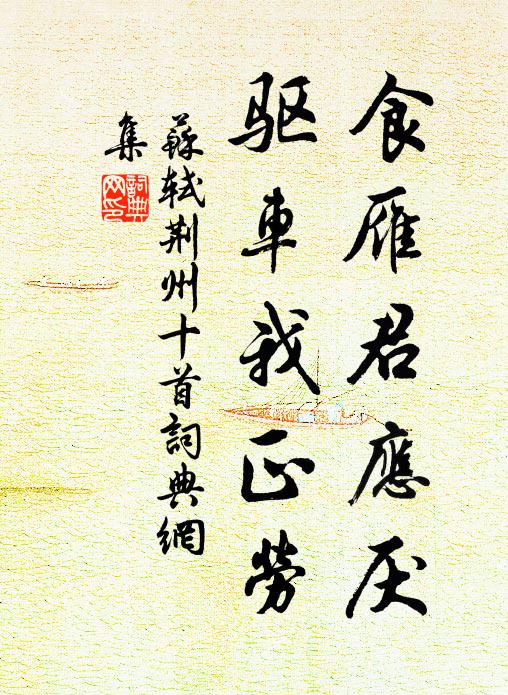 食雁君應厌
驱車我正勞
蘇軾荆州十首詞典網
集
詞典
网印